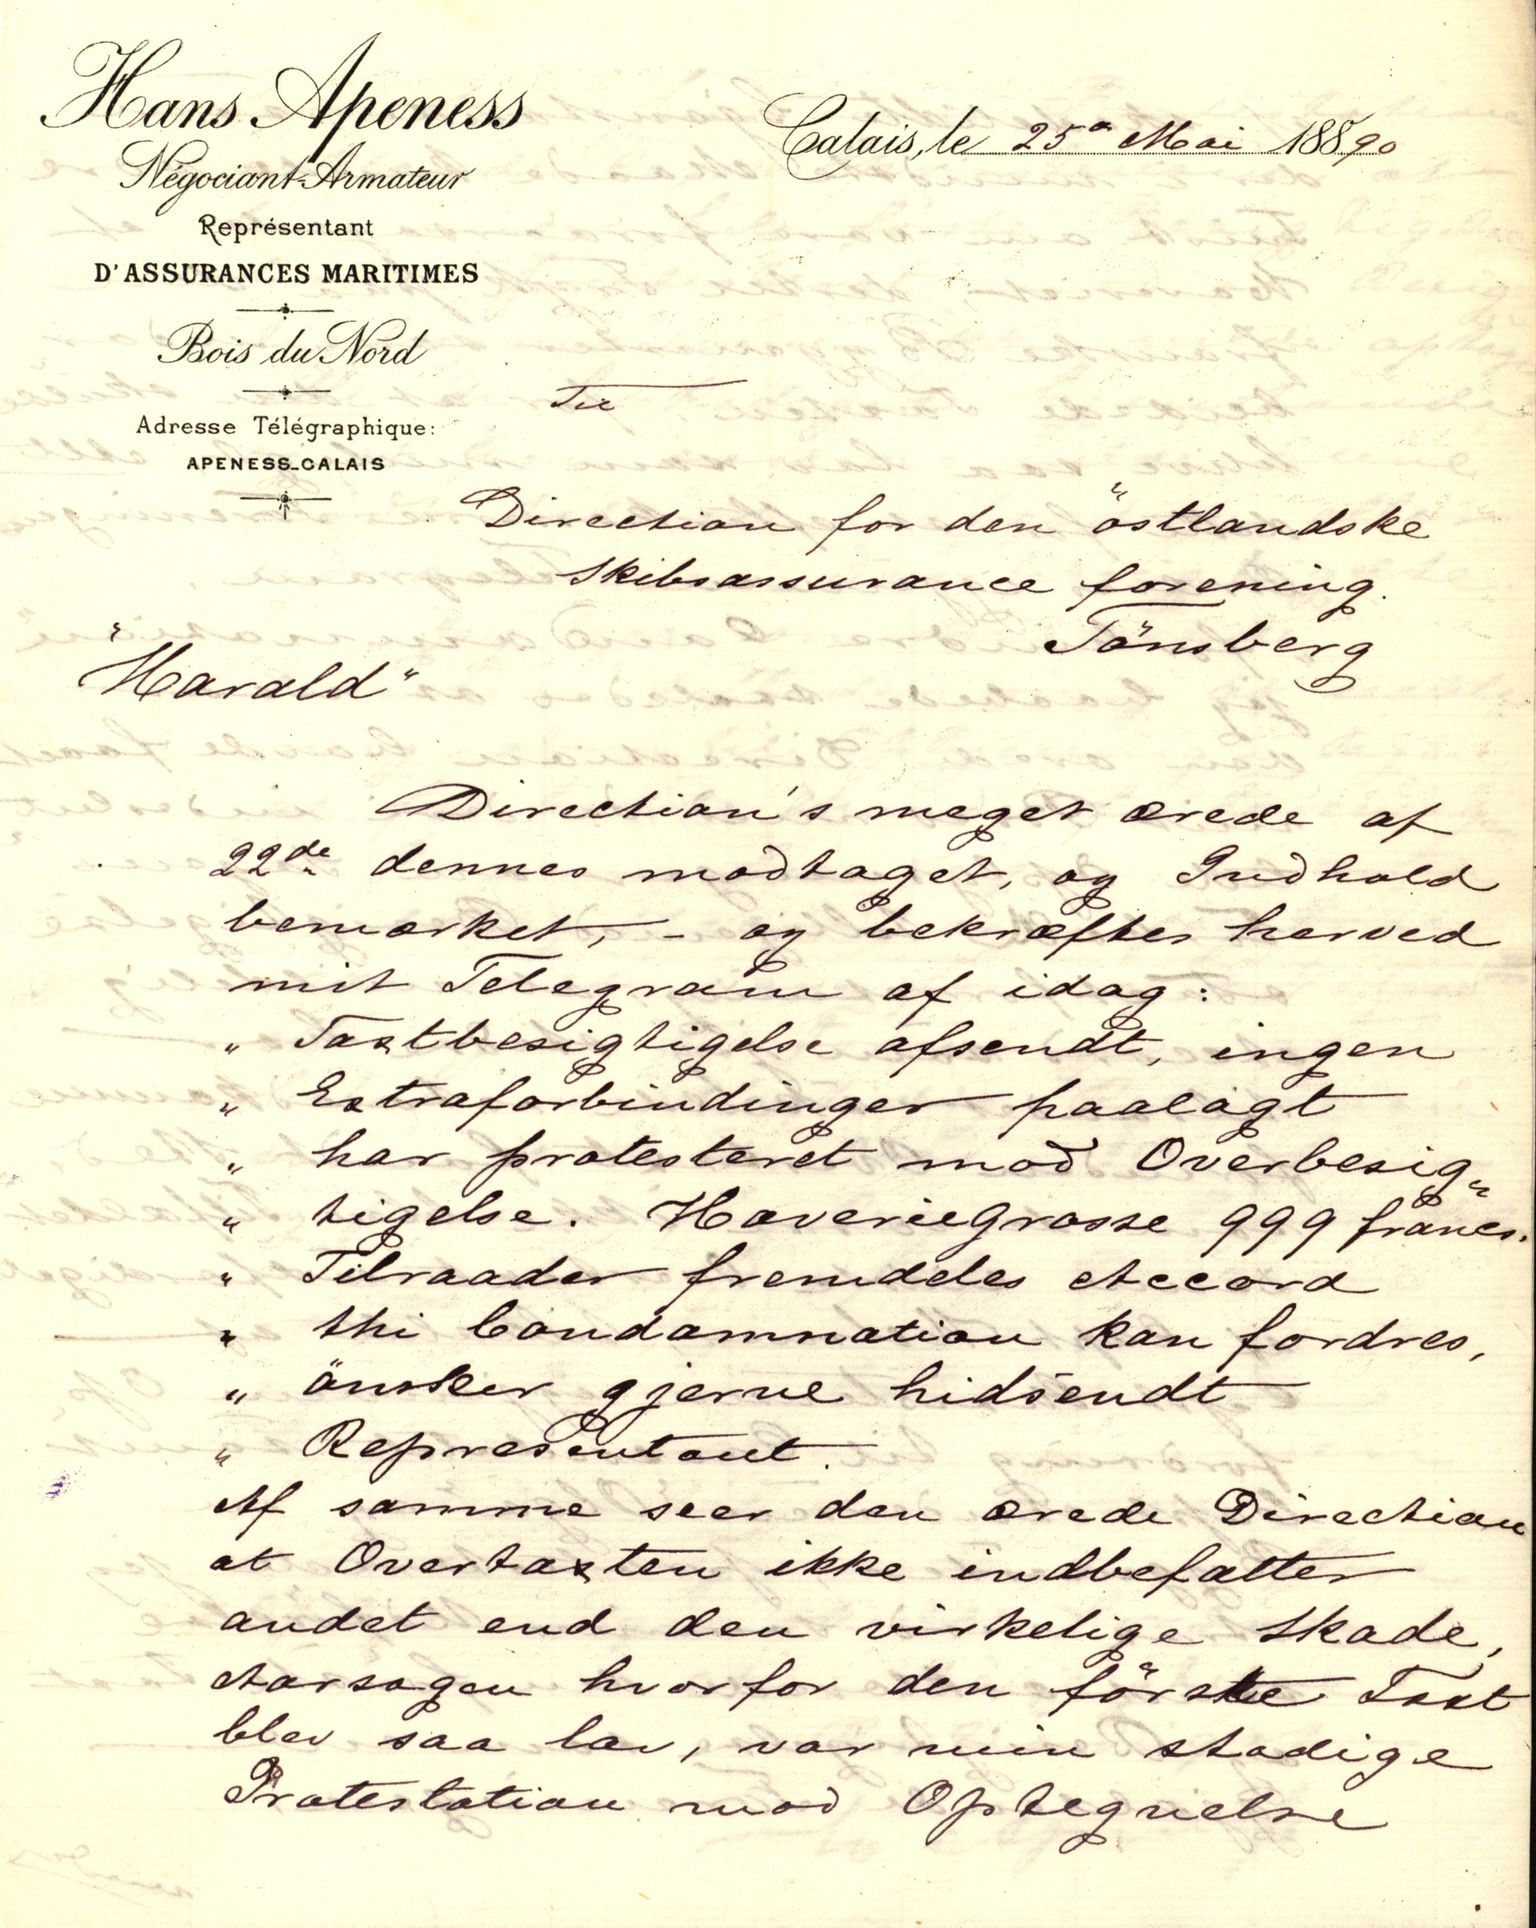 Hans Apeness
Négociant-Armateur
Représentant
D'ASSURANCES MARITIMES
Bois du Nord
Adresse Télégraphique:
APENESS-CALAIS
Calais, le 25de Mai 18890
Til
Direction for den östlandske
Skibsassurance forening.
Tönsberg
"Harald"
Direction's meget ærede af
22de dennes modtaget, og Indhold
bemærket, - og bekræftes herved
mit Telegram af idag:
" Taxtbesigtigelse afsendt, ingen
" Extraforbindinger paalagt
" har protesteret mod Overbesig"
" tigelse. Haveriegrosse 999 francs.
" Tilraader fremdeles Accord
" thi Condamnation kan fordres,
" önsker gjerne hidsendt
" Representant.
Af samme seer den ærede Direction
at Overtaxten ikke indbefatter
andet end den virkelige Skade,
Aarsagen hvorfor den förste Taxt
blev saa lav, var min stadige
Protestation mod Optegnelse